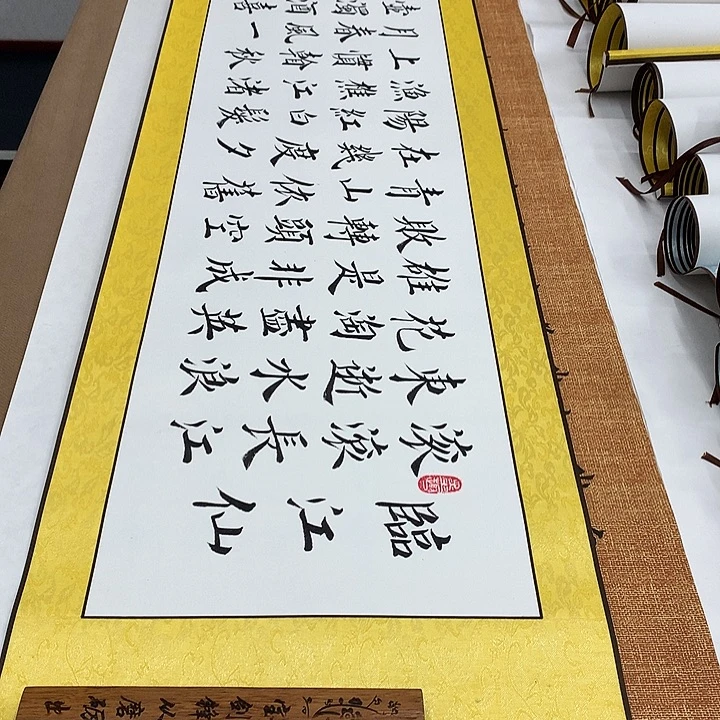 臨江仙
滾滾長江
東逝水浪
花淘盡英
雄是非成
敗轉頭空
青山依舊
在幾度夕
陽紅白髮
漁樵江渚
上慣看秋
月春風一
壺濁酒喜
宝剑锋从磨砺出